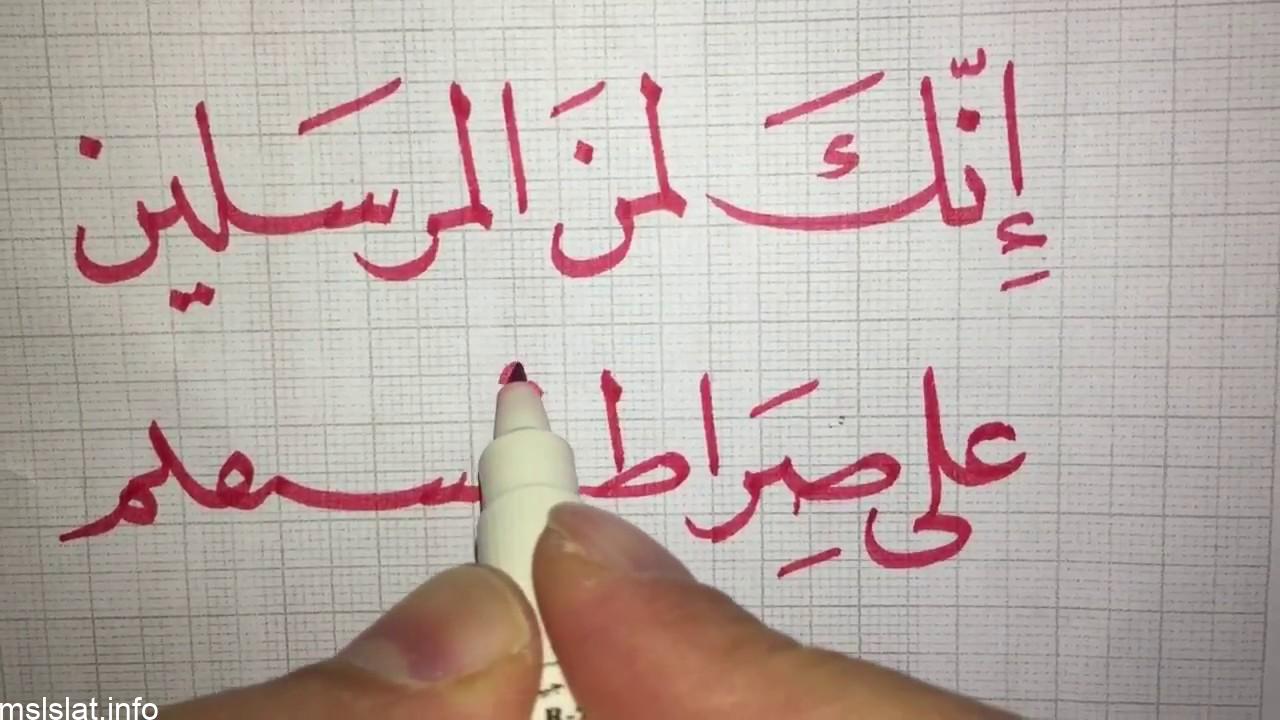 إِنّكَ لمنَ المرسَلين
على صِرَاط
mslslat.info